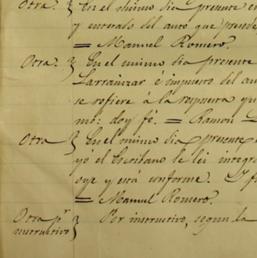 Otra. } En el mismo dia presente en
y enterado del auto que prende
= Manuel Romero.
Otra. } En el mismo dia presente
Larrainzar é impuesto del au
se refiere á la respuesta qu
mo: doy fé. = Ramon L
Otra } En el mismo dia presente
yó el Escribano le leí integro
oye y está conforme. D f
= Manuel Romero.
Otra pr } Por instructivo, segun la
instructivo